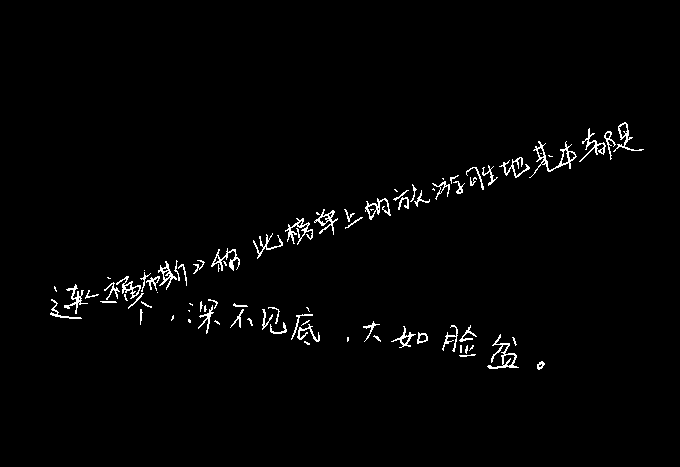 连《福布斯》称此榜单上的旅游胜地基本都是
个,深不见底,大如脸盆。